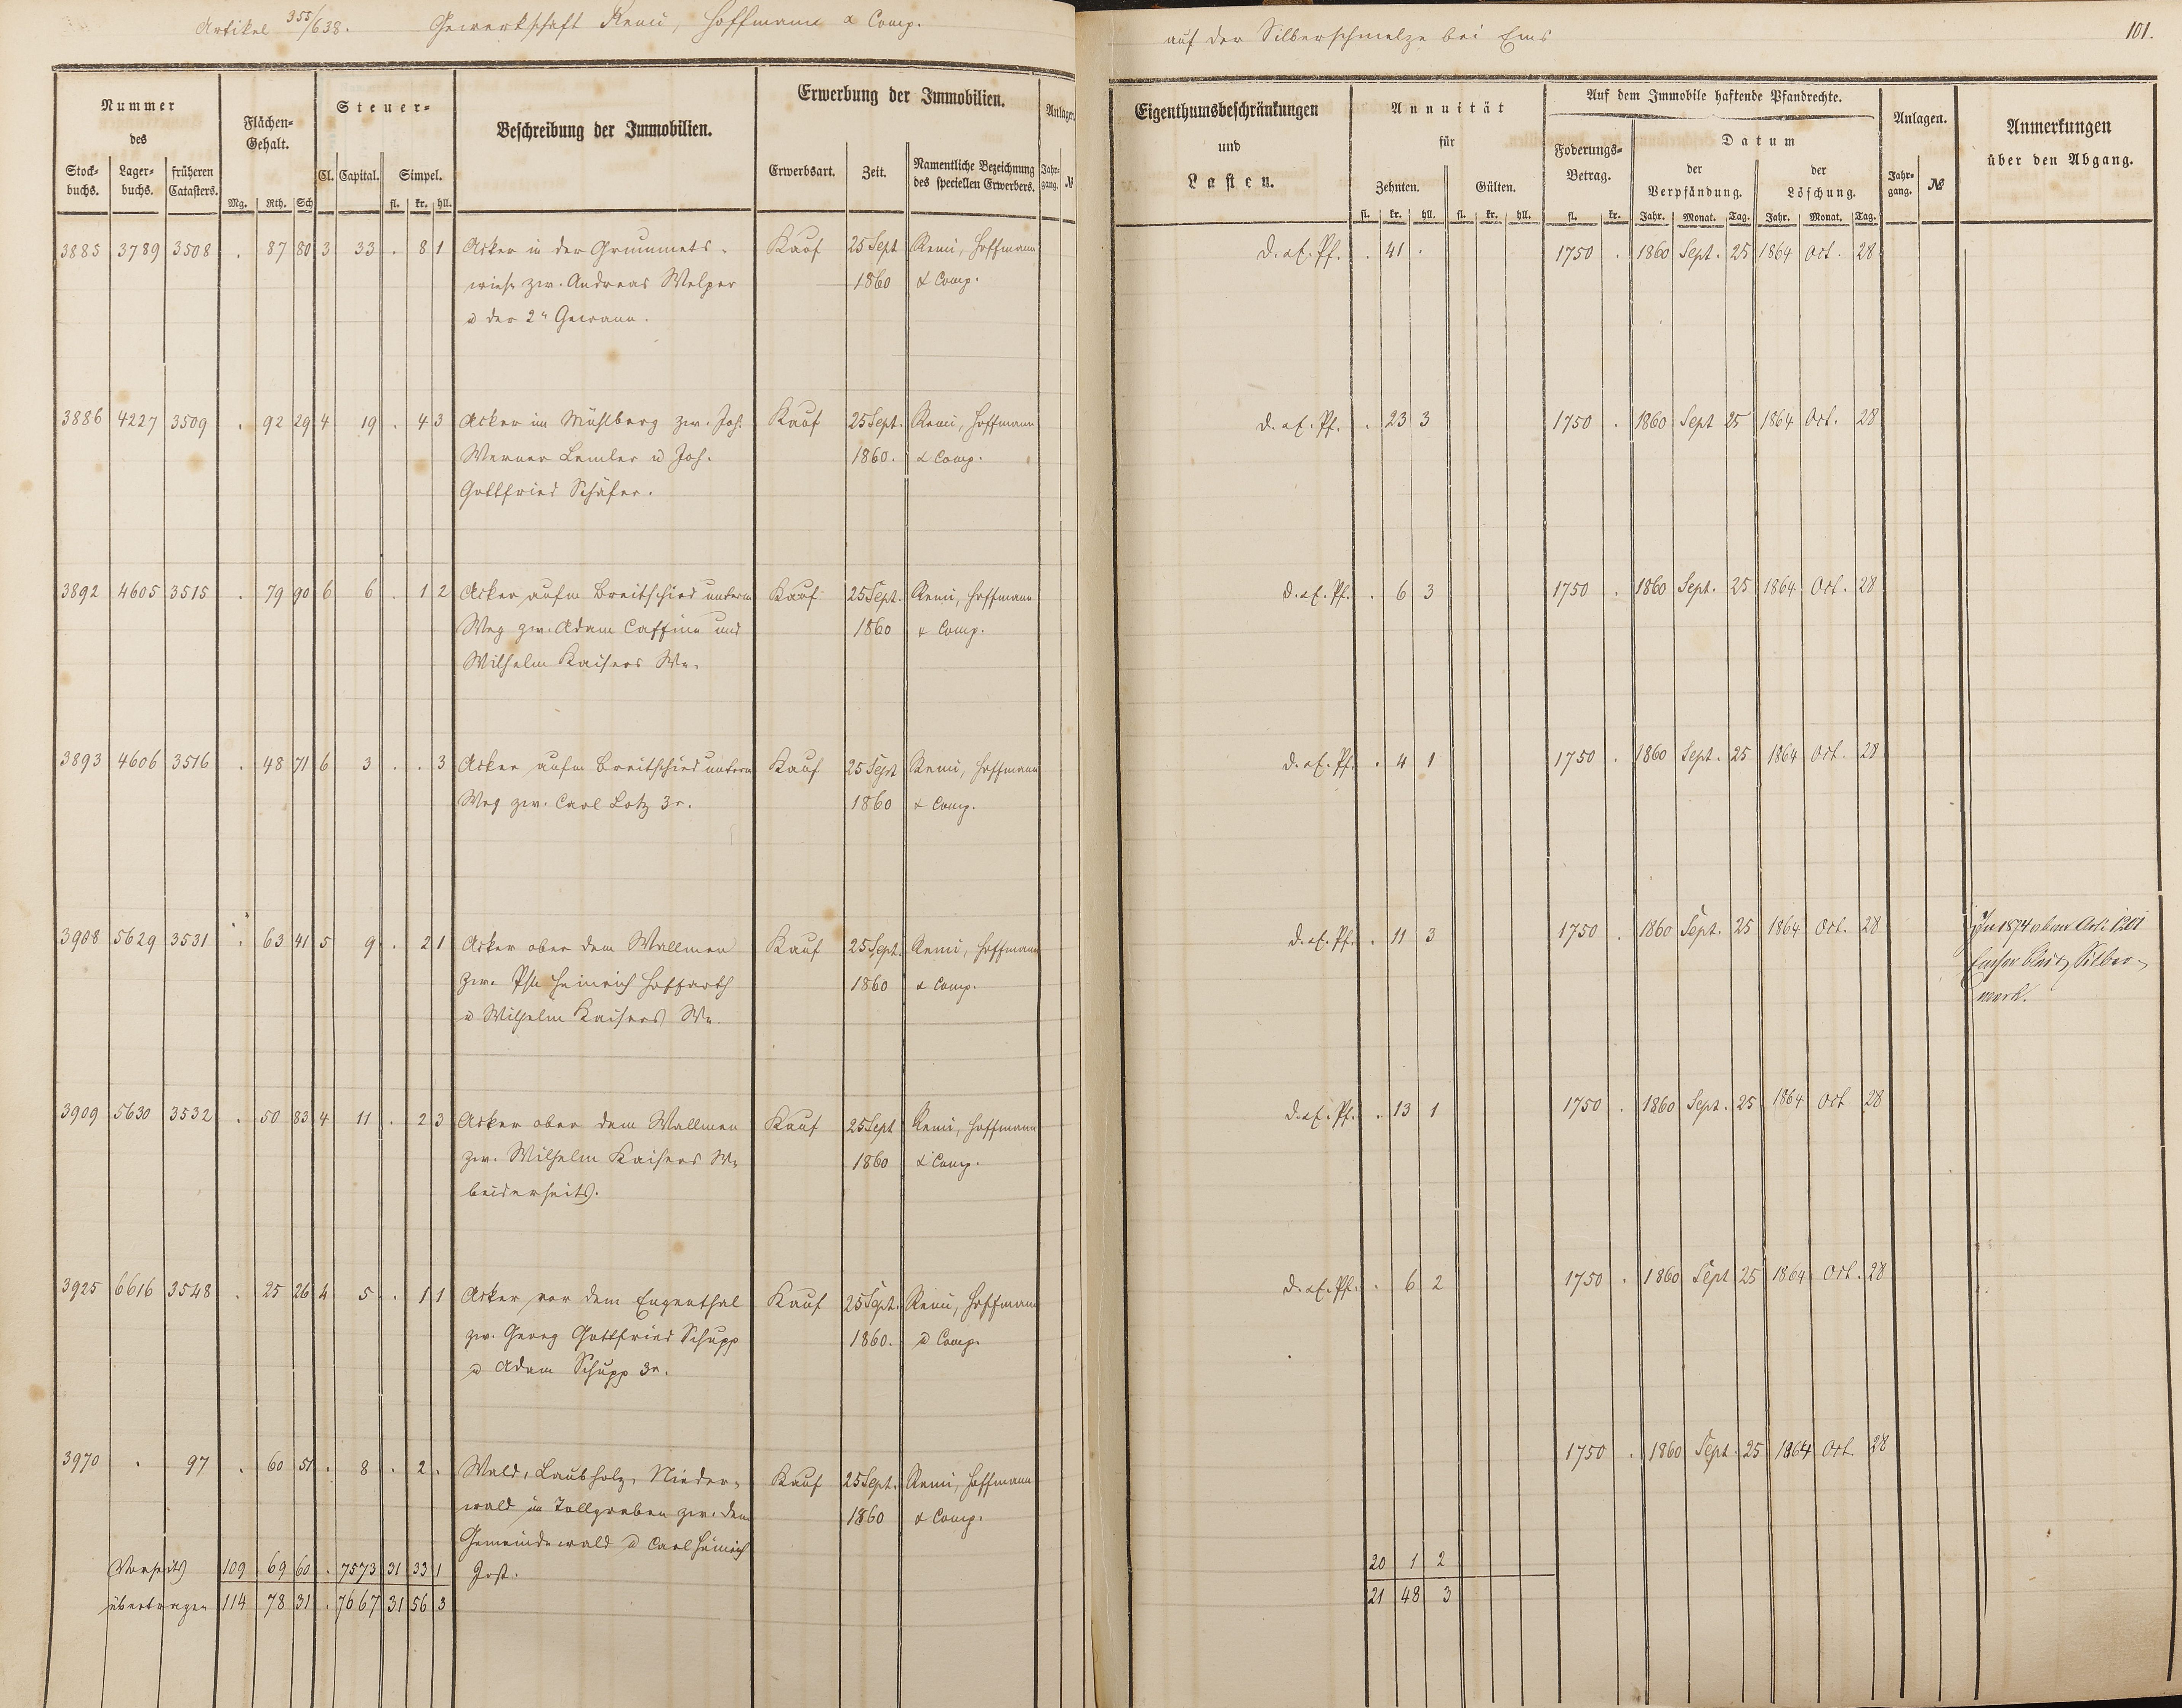 Artikel 355/638. Gewerkschaft Remi, Hoffmann & Comp.
auf der Silberschmelze bei Ems
101.
Nummer des
Stock-buchs. Lager-buchs. früheren Catasters.
Flächen-Gehalt.
Mg. Rth. Sch
Steuer-
Cl. Capital. Simpel.
fl. kr. hll.
Beschreibung der Immobilien.
Erwerbung der Immobilien.
Erwerbsart. Zeit. Namentliche Bezeichnung des speciellen Erwerbers.
Anlagen.
Jahr-gang. №
Eigenthumsbeschränkungen
und
Lasten.
Annuität
für
Zehnten. Gülten.
fl. kr. hll. fl. kr. hll.
Auf dem Immobile haftende Pfandrechte.
Foderungs-Betrag.
fl. kr.
Datum
der Verpfändung. der Löschung.
Jahr. Monat. Tag. Jahr. Monat. Tag.
Anlagen.
Jahr-gang. №
Anmerkungen
über den Abgang.
3885 3789 3508 . 87 80 3 33 . 8 1 Acker in der Grummets- Kauf 25 Sept Remi, Hoffmann d. a. E. Pf. . 41 . 1750 . 1860 Sept. 25 1864 Oct. 28
wiese zw. Andreas Welper 1860 & Comp.
u der 2n Gewann.
3886 4227 3509 . 92 29 4 19 . 4 3 Acker im Mühlberg zw. Joh. Kauf 25 Sept. Remi, Hoffmann d. a. E. Pf. . 23 3 1750 . 1860 Sept 25 1864 Oct. 28
Werner Lemler u Joh. 1860. & Comp.
Gottfried Schäfer.
3892 4605 3515 . 79 90 6 6 . 1 2 Acker aufm Breitschied unterm Kauf 25 Sept. Remi, Hoffmann d. a. E. Pf. . 6 3 1750 . 1860 Sept. 25 1864 Oct. 28
Weg zw. Adam Caffine und 1860 & Comp.
Wilhelm Kaisers We.
3893 4606 3516 . 48 71 6 3 . . 3 Acker aufm Breitschied unterm Kauf 25 Sept Remi, Hoffmann d. a. E. Pf. . 4 1 1750 . 1860 Sept. 25 1864 Oct. 28
Weg zw. Carl Lotz 3r. 1860 & Comp.
3908 5629 3531 . 63 41 5 9 . 2 1 Acker ober dem Wallmen Kauf 25 Sept. Remi, Hoffmann d. a. E. Pf. . 11 3 1750 . 1860 Sept. 25 1864 Oct. 28 In 1874 Art. 1201
zw. Heinrich Hoffarth 1860 & Comp. Emser Blei & Silber-
u Wilhelm Kaisers We. werk.
3909 5630 3532 . 50 83 4 11 . 2 3 Acker ober dem Wallmen Kauf 25 Sept Remi, Hoffmann d. a. E. Pf. . 13 1 1750 . 1860 Sept. 25 1864 Oct 28
zw. Wilhelm Kaisers We 1860 & Comp.
beiderseits.
3925 6616 3548 . 25 26 4 5 . 1 1 Acker vor dem Engenthal Kauf 25 Sept. Remi, Hoffmann d. a. E. Pf. . 6 2 1750 . 1860 Sept 25 1864 Oct. 28
zw. Georg Gottfried Schupp 1860. u Comp.
u Adam Schupp 3r.
3970 . 97 . 60 51 . 8 . 2 . Wald, Laubholz, Nieder- Kauf 25 Sept. Remi, Hoffmann 1750 . 1860 Sept. 25 1864 Oct 28
wald im Tollgraben zw. dem 1860 & Comp.
Gemeindewald u Carl Heinrich
Vorseits 109 69 60 . 7573 31 33 1 Jost. 20 1 2
übertragen 114 78 31 . 7667 31 56 3 21 48 3